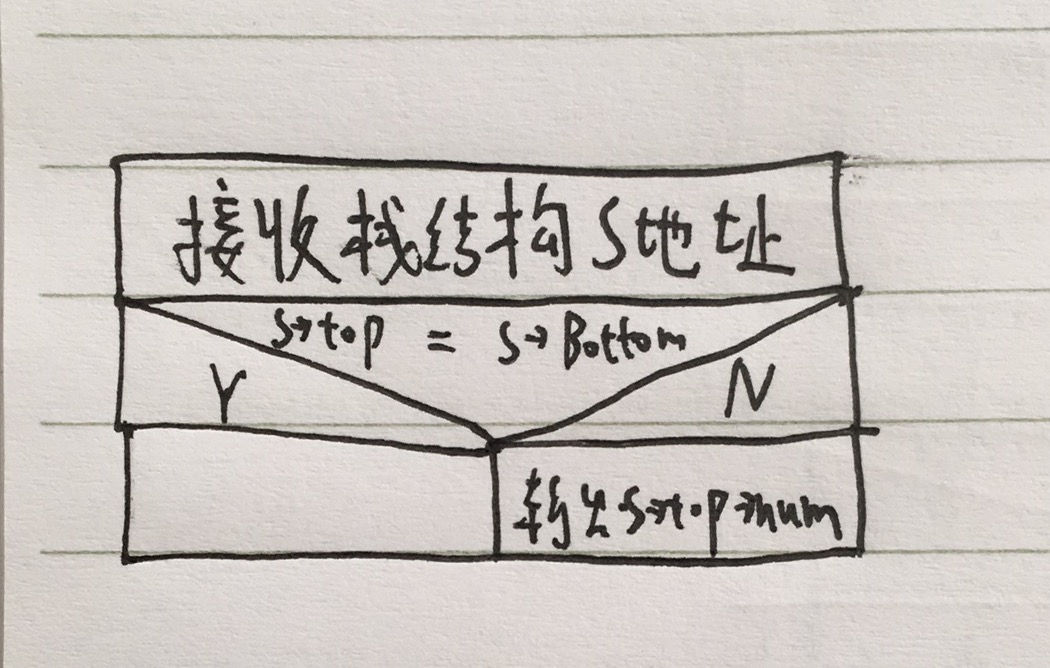 接收栈结构S地址
S→top = S→Bottom
Y N
输出S→top→num